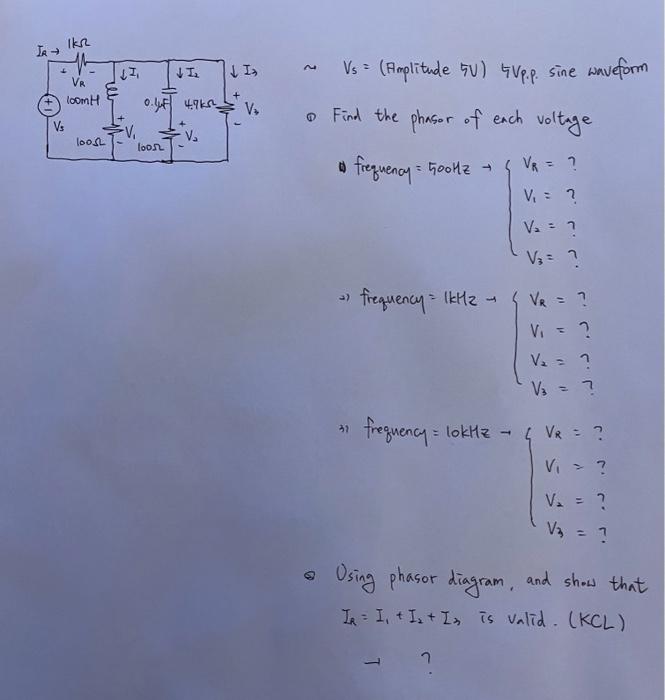 I_R → 1kΩ
+ V_R -
↓I₁ ↓I₂ ↓I₃
100mH 0.1μF 4.7kΩ + V₃ -
Vs
100Ω + V₁ - 100Ω + V₂ -
~ Vs = (Amplitude 5V) 5Vp.p. sine waveform
① Find the phasor of each voltage
1) frequency = 500Hz → { V_R = ?
V₁ = ?
V₂ = ?
V₃ = ?
2) frequency = 1kHz → { V_R = ?
V₁ = ?
V₂ = ?
V₃ = ?
3) frequency = 10kHz → { V_R = ?
V₁ = ?
V₂ = ?
V₃ = ?
② Using phasor diagram, and show that
I_R = I₁ + I₂ + I₃ is valid. (KCL)
→ ?